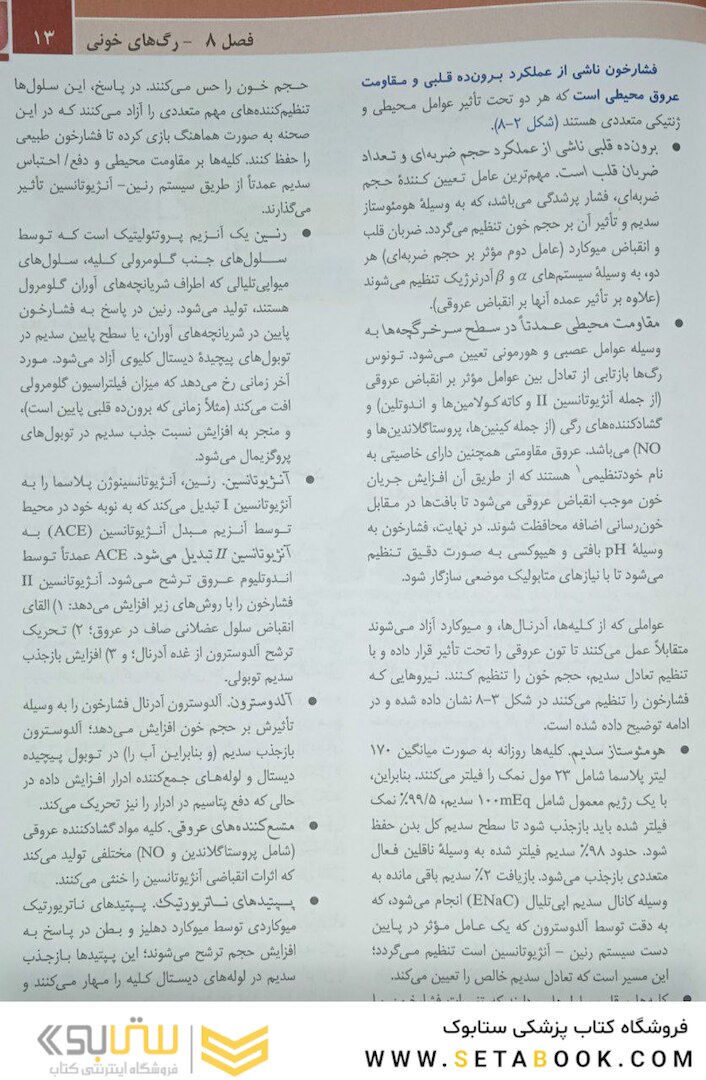 فصل ۸ - رگ‌های خونی
۱۳
فشارخون ناشی از عملکرد برون‌ده قلبی و مقاومت
عروق محیطی است که هر دو تحت تأثیر عوامل محیطی و
ژنتیکی متعددی هستند (شکل ۲-۸).
● برون‌ده قلبی ناشی از عملکرد حجم ضربه‌ای و تعداد
ضربان قلب است. مهم‌ترین عامل تعیین کنندهٔ حجم
ضربه‌ای، فشار پرشدگی می‌باشد، که به وسیلهٔ هومئوستاز
سدیم و تأثیر آن بر حجم خون تنظیم می‌گردد. ضربان قلب
و انقباض میوکارد (عامل دوم مؤثر بر حجم ضربه‌ای) هر
دو، به وسیلهٔ سیستم‌های α و β آدرنرژیک تنظیم می‌شوند
(علاوه بر تأثیر عمده آنها بر انقباض عروقی).
● مقاومت محیطی عمدتاً در سطح سرخرگچه‌ها به
وسیله عوامل عصبی و هورمونی تعیین می‌شود. تونوس
رگ‌ها بازتابی از تعادل بین عوامل مؤثر بر انقباض عروقی
(از جمله آنژیوتانسین II و کاته‌کولامین‌ها و اندوتلین) و
گشادکننده‌های رگی (از جمله کینین‌ها، پروستاگلاندین‌ها و
NO) می‌باشد. عروق مقاومتی همچنین دارای خاصیتی به
نام خودتنظیمی۱ هستند که از طریق آن افزایش جریان
خون موجب انقباض عروقی می‌شود تا بافت‌ها در مقابل
خون‌رسانی اضافه محافظت شوند. در نهایت، فشارخون به
وسیلهٔ pH بافتی و هیپوکسی به صورت دقیق تنظیم
می‌شود تا با نیازهای متابولیک موضعی سازگار شود.
عواملی که از کلیه‌ها، آدرنال‌ها، و میوکارد آزاد می‌شوند
متقابلاً عمل می‌کنند تا تون عروقی را تحت تأثیر قرار داده و با
تنظیم تعادل سدیم، حجم خون را تنظیم کنند. نیروهایی که
فشارخون را تنظیم می‌کنند در شکل ۳-۸ نشان داده شده و در
ادامه توضیح داده شده است.
● هومئوستاز سدیم. کلیه‌ها روزانه به صورت میانگین ۱۷۰
لیتر پلاسما شامل ۲۳ مول نمک را فیلتر می‌کنند. بنابراین،
با یک رژیم معمول شامل ۱۰۰mEq سدیم، ۹۹/۵٪ نمک
فیلتر شده باید بازجذب شود تا سطح سدیم کل بدن حفظ
شود. حدود ۹۸٪ سدیم فیلتر شده به وسیلهٔ ناقلین فعال
متعددی بازجذب می‌شود. بازیافت ۲٪ سدیم باقی مانده به
وسیله کانال سدیم اپی‌تلیال (ENaC) انجام می‌شود، که
به دقت توسط آلدوسترون که یک عامل مؤثر در پایین
دست سیستم رنین - آنژیوتانسین است تنظیم می‌گردد؛
این مسیر است که تعادل سدیم خالص را تعیین می‌کند.
حجم خون را حس می‌کنند. در پاسخ، این سلول‌ها
تنظیم‌کننده‌های مهم متعددی را آزاد می‌کنند که در این
صحنه به صورت هماهنگ بازی کرده تا فشارخون طبیعی
را حفظ کنند. کلیه‌ها بر مقاومت محیطی و دفع/ احتباس
سدیم عمدتاً از طریق سیستم رنین- آنژیوتانسین تأثیر
می‌گذارند.
● رنین یک آنزیم پروتئولیتیک است که توسط
سلول‌های جنب گلومرولی کلیه، سلول‌های
میواپی‌تلیالی که اطراف شریانچه‌های آوران گلومرول
هستند، تولید می‌شود. رنین در پاسخ به فشارخون
پایین در شریانچه‌های آوران، یا سطح پایین سدیم در
توبول‌های پیچیدهٔ دیستال کلیوی آزاد می‌شود. مورد
آخر زمانی رخ می‌دهد که میزان فیلتراسیون گلومرولی
افت می‌کند (مثلاً زمانی که برون‌ده قلبی پایین است)،
و منجر به افزایش نسبت جذب سدیم در توبول‌های
پروگزیمال می‌شود.
● آنژیوتانسین. رنین، آنژیوتانسینوژن پلاسما را به
آنژیوتانسین I تبدیل می‌کند که به نوبه خود در محیط
توسط آنزیم مبدل آنژیوتانسین (ACE) به
آنژیوتانسین II تبدیل می‌شود. ACE عمدتاً توسط
اندوتلیوم عروق ترشح می‌شود. آنژیوتانسین II
فشارخون را با روش‌های زیر افزایش می‌دهد: ۱) القای
انقباض سلول عضلانی صاف در عروق؛ ۲) تحریک
ترشح آلدوسترون از غده آدرنال؛ و ۳) افزایش بازجذب
سدیم توبولی.
● آلدوسترون. آلدوسترون آدرنال فشارخون را به وسیله
تأثیرش بر حجم خون افزایش می‌دهد؛ آلدوسترون
بازجذب سدیم (و بنابراین آب را) در توبول پیچیده
دیستال و لوله‌های جمع‌کننده ادرار افزایش داده در
حالی که دفع پتاسیم در ادرار را نیز تحریک می‌کند.
● متسع‌کننده‌های عروقی. کلیه مواد گشادکننده عروقی
(شامل پروستاگلاندین و NO) مختلفی تولید می‌کند
که اثرات انقباضی آنژیوتانسین را خنثی می‌کنند.
● پپتیدهای ناتریورتیک. پپتیدهای ناتریورتیک
میوکاردی توسط میوکارد دهلیز و بطن در پاسخ به
افزایش حجم ترشح می‌شوند؛ این پپتیدها بازجذب
سدیم در لوله‌های دیستال کلیه را مهار می‌کنند و
فروشگاه کتاب پزشکی ستابوک
WWW.SETABOOK.COM
ستابوک
فروشگاه اینترنتی کتاب